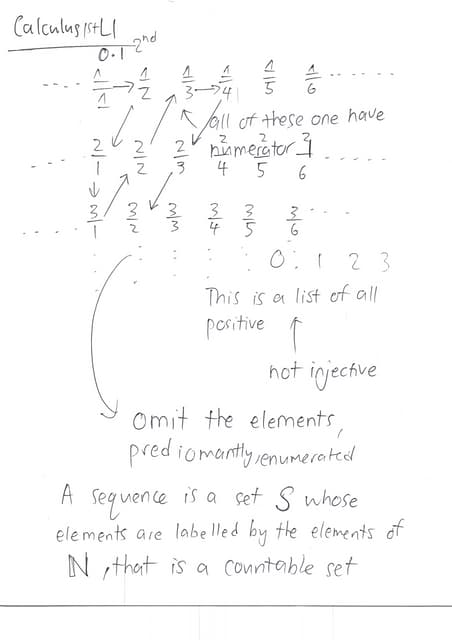 Calculus 1st L1
0.1 2nd
.... 1/1 → 1/2 1/3 → 1/4 1/5 1/6 ......
all of these one have
numerator 1
... 2/1 2/2 2/3 2/4 2/5 2/6 .....
.... 3/1 3/2 3/3 3/4 3/5 3/6 ...
0. 1 2 3
This is a list of all
positive
not injective
omit the elements,
prediomantly, enumerated
A sequence is a set S whose
elements are labelled by the elements of
ℕ, that is a countable set